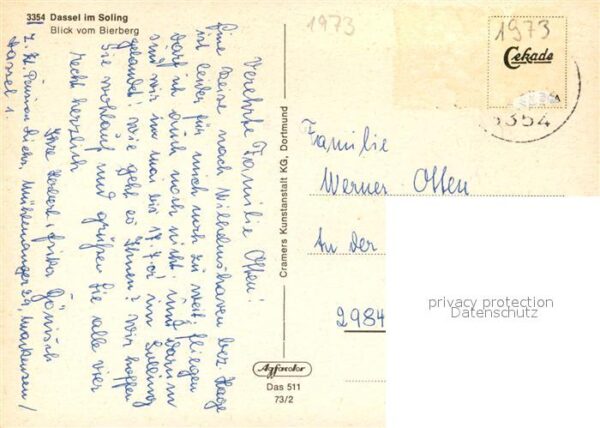 3354 Dassel im Soling
Blick vom Bierberg
Verehrte Familie Otten!
Eine Reise nach Wilhelmshaven bez. Hage
ist leider für mich noch zu weit, fliegen
darf ich auch noch nicht und darum
sind wir im Mai bis 17.7. im Solling
gelandet. Wie geht es Ihnen? Wir hoffen
Sie wohlauf und grüßen Sie alle vier
recht herzlich
Ihre Herbert + Erika
z. Zt. Pension Diehn, Mühlenanger 29, Markoldendorf /
Dassel 1.
Cramers Kunstanstalt KG, Dortmund
Agfacolor
Das 511
73/2
1973
1973
Cekade
3354
Familie
Werner Otten
An der
2984
privacy protection
Datenschutz